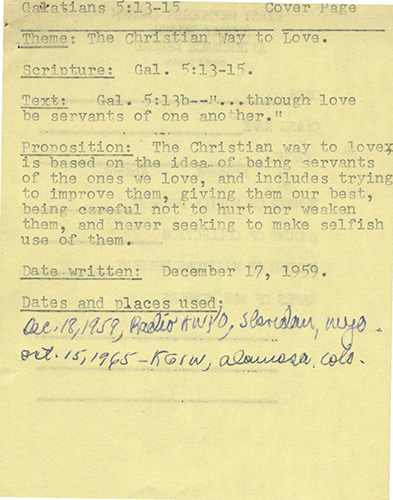 Galatians 5:13-15 Cover Page
Theme: The Christian Way to Love.
Scripture: Gal. 5:13-15.
Text: Gal. 5:13b--"...through love
be servants of one another."
Proposition: The Christian way to love,
is based on the idea of being servants
of the ones we love, and includes trying
to improve them, giving them our best,
being czreful not to hurt nor weaken
them, and never seeking to make selfish
use of them.
Date written: December 17, 1959.
Dates and places used:
Dec. 18, 1959, Radio KWYO, Sheridan, Wyo.
Oct. 15, 1965 - KGIW, Alamosa, Colo.